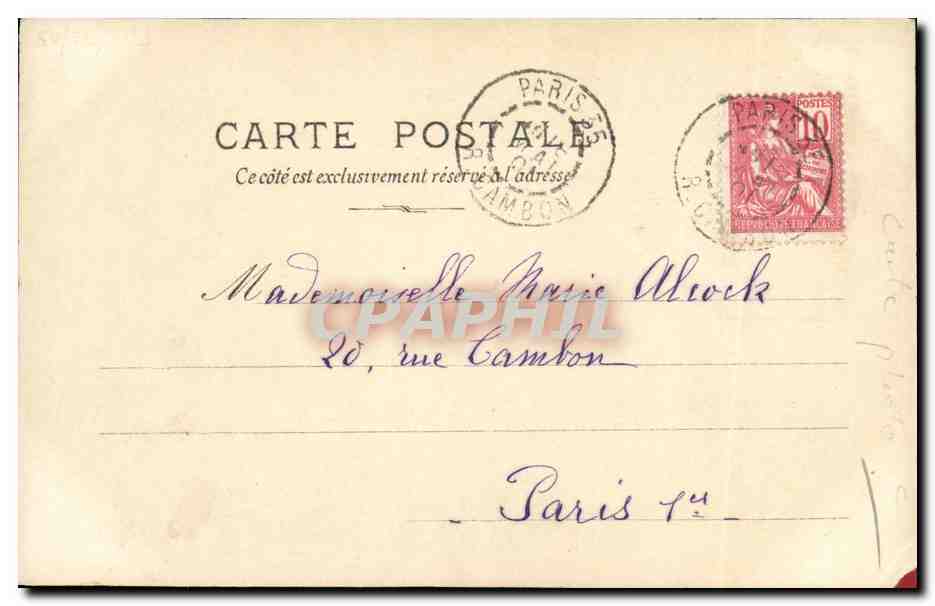 PARIS 55
R. CAMBON
PARIS
POSTES
10
REPUBLIQUE FRANÇAISE
CARTE POSTALE
Ce côté est exclusivement réservé à l'adresse
Mademoiselle Marie Alcock
CPAPHIL
20, rue Cambon
Paris 1er
carte photo